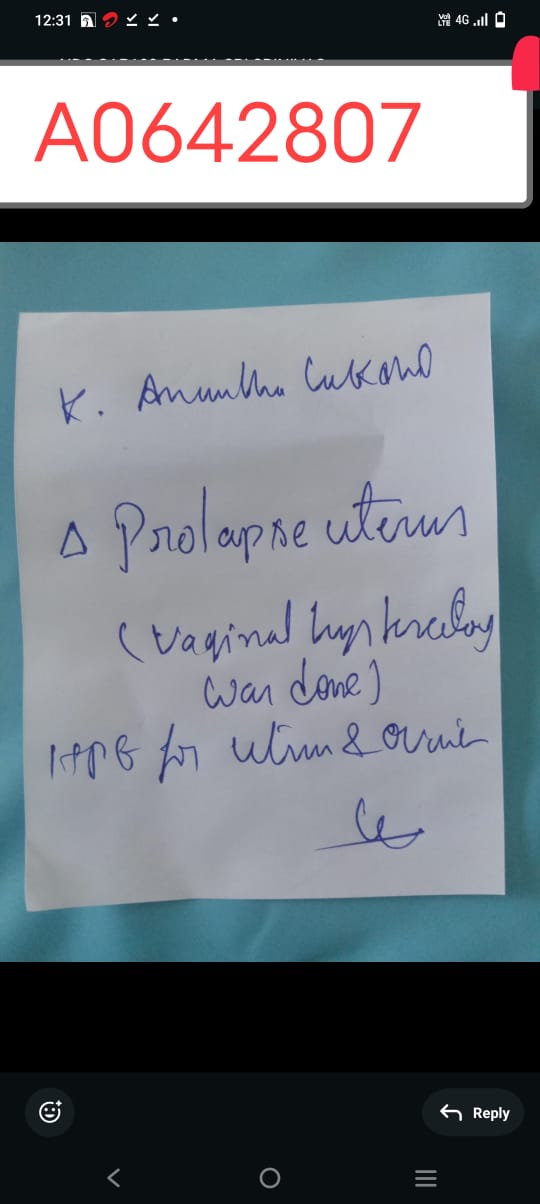 12:31
VoLTE 4G
A0642807
K.
Δ Prolapse uterus
(Vaginal hysterectomy
was done)
HPE for uterus & ovaries
Reply